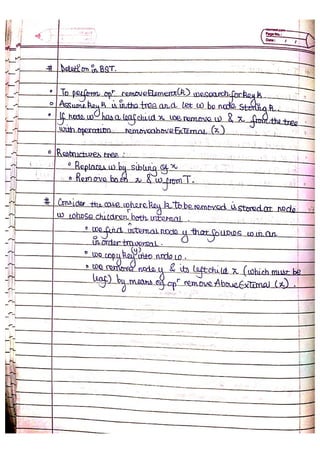 Page No.:
Date: / /
# Deletion in BST.
• To perform opn removeElement(k) we search for key k.
o Assume key k is in the tree and let w be node storing k.
• If node w has a leaf child x we remove w & x from the tree
with operation removeAboveExternal (x)
o Restructures tree:
• Replaces w by sibling of x
• Remove both x & w from T.
# Consider the case where key k to be removed is stored at node
w whose children both internal
• we find internal node y that follows w in an
inorder traversal.
• we copy key(y) into node w.
• we remove node y & its left child x (which must be
leaf) by means of opn removeAboveExternal (x).